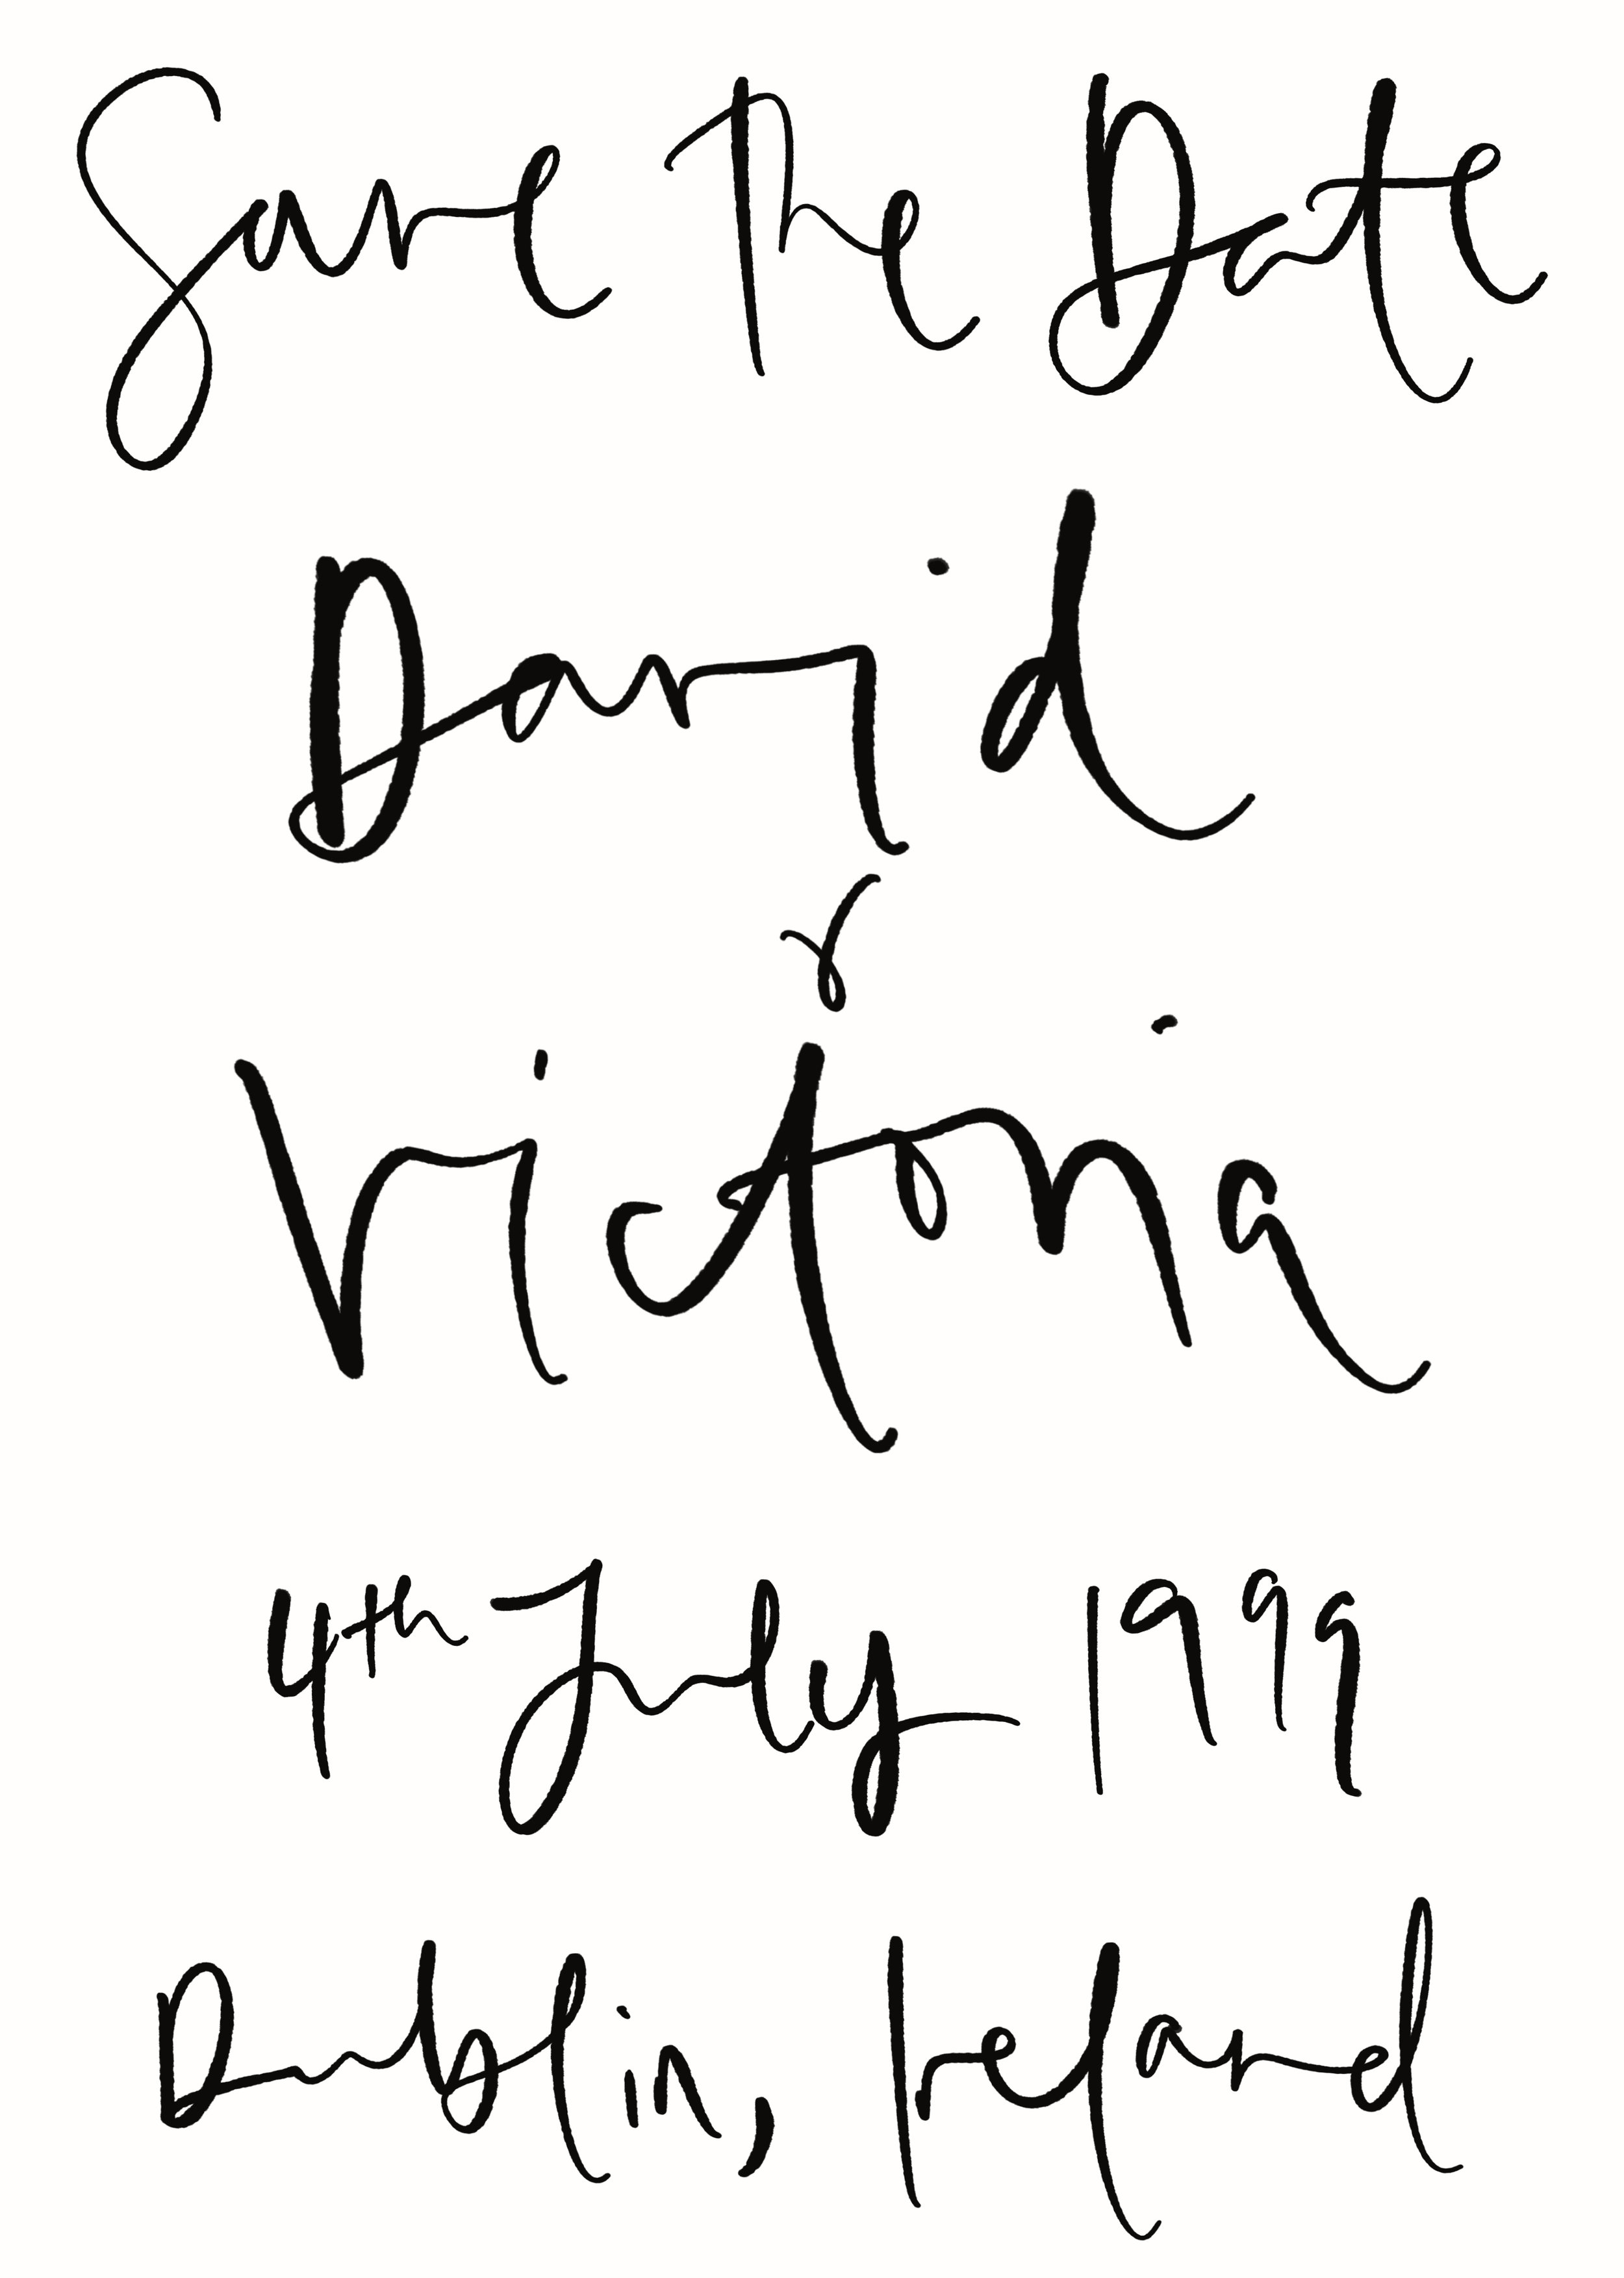 Save The Date
David
&
Victoria
4th July 1999
Dublin, Ireland